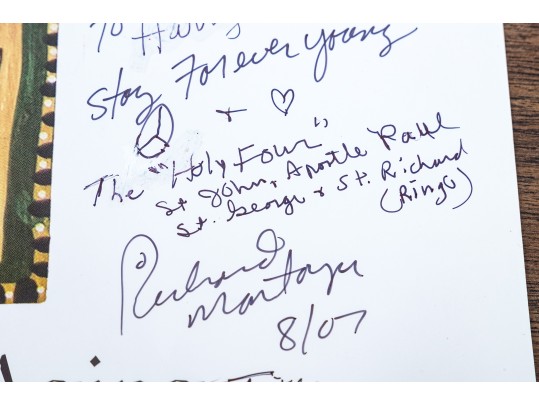 To Harv
Stay Forever young
+
The "Holy Four"
St John, Apostle Paul
St. George & St. Richard
(Ringo)
Richard
8/07